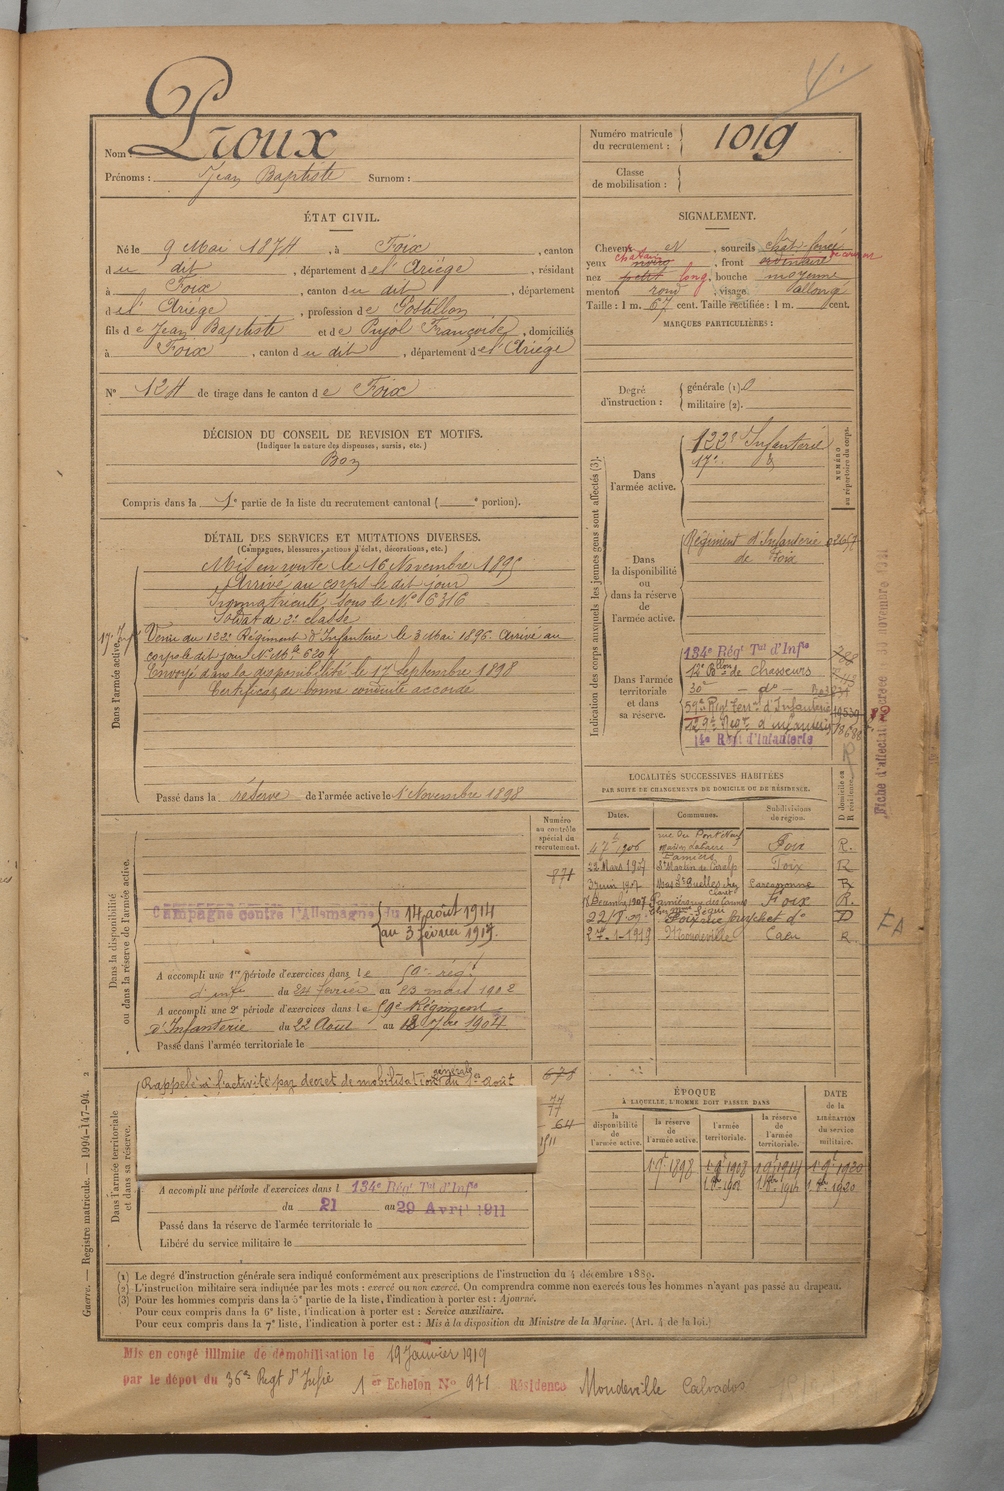 Nom : Proux
Prénoms : Jean Baptiste Surnom :
Numéro matricule du recrutement : 1019
Classe de mobilisation :
ÉTAT CIVIL.
Né le 9 Mai 1874, à Foix, canton
du dit, département de l'Ariège, résidant
à Foix, canton du dit, département
de l'Ariège, profession de Postillon
fils de Jean Baptiste et de Pujol Françoise, domiciliés
à Foix, canton du dit, département de l'Ariège
N° 124 de tirage dans le canton de Foix
SIGNALEMENT.
Cheveux et, sourcils chât. foncé
yeux châtain, front ordinaire
nez petit long, bouche moyenne
menton rond, visage allongé
Taille : 1 m. 67 cent. Taille rectifiée : 1 m. cent.
MARQUES PARTICULIÈRES :
Degré d'instruction : générale (1). 0
militaire (2).
DÉCISION DU CONSEIL DE REVISION ET MOTIFS.
(Indiquer la nature des dispenses, sursis, etc.)
Bon
Compris dans la 1e partie de la liste du recrutement cantonal ( portion).
DÉTAIL DES SERVICES ET MUTATIONS DIVERSES.
(Campagnes, blessures, actions d'éclat, décorations, etc.)
Dans l'armée active.
Mis en route le 16 Novembre 1895
Arrivé au corps le dit jour
Immatriculé sous le N° 16316
Soldat de 2e classe
Venu du 122e Régiment d'Infanterie le 3 Mai 1896. Arrivé au
corps le dit jour N° Mle
Envoyé dans la disponibilité le 17 Septembre 1898
Certificat de bonne conduite accordé
Passé dans la réserve de l'armée active le 1 Novembre 1898
Indication des corps auxquels les jeunes gens sont affectés (3).
NUMÉRO au répertoire du corps.
Dans l'armée active.
122e Infanterie
17e
Dans la disponibilité ou dans la réserve de l'armée active.
Régiment d'Infanterie
de Foix
Dans l'armée territoriale et dans sa réserve.
134e Régt Tal d'Infie
12e Bllon de Chasseurs
30e - do -
59e Régt Terr. d'Infanterie
129e Régt d'Infanterie
14e Régt d'Infanterie
LOCALITÉS SUCCESSIVES HABITÉES
PAR SUITE DE CHANGEMENTS DE DOMICILE OU DE RÉSIDENCE.
Dates. Communes. Subdivisions de région. D domicile ou R résidence.
1906 rue du Pont Neuf Foix R.
22 Mars 1907 Foix R
3 Juin 1907 Carcassonne R
Décembre 1907 Foix R.
D
27-1-1919 Mondeville Caen R
Dans la disponibilité ou dans la réserve de l'armée active.
Numéro au contrôle spécial du recrutement.
871
Campagne contre l'Allemagne du 14 août 1914
au 3 février 1917.
A accompli une 1re période d'exercices dans le 59e régt
d'infie du 24 février au 23 mars 1902
A accompli une 2e période d'exercices dans le 59e Régiment
d'Infanterie du 22 Août au 18 7bre 1904
Passé dans l'armée territoriale le
Dans l'armée territoriale et dans sa réserve.
Rappelé à l'activité par décret de mobilisation générale du 1er août
A accompli une période d'exercices dans l 134e Régt Tal d'Infie
du 21 au 29 Avril 1911
Passé dans la réserve de l'armée territoriale le
Libéré du service militaire le
ÉPOQUE
À LAQUELLE L'HOMME DOIT PASSER DANS
la disponibilité de l'armée active. la réserve de l'armée active. l'armée territoriale. la réserve de l'armée territoriale. DATE de la LIBÉRATION du service militaire.
1 9e 1898 1 9e 1908 1 9e 1914 1 9e 1920
(1) Le degré d'instruction générale sera indiqué conformément aux prescriptions de l'instruction du 4 décembre 1889.
(2) L'instruction militaire sera indiquée par les mots : exercé ou non exercé. On comprendra comme non exercés tous les hommes n'ayant pas passé au drapeau.
(3) Pour les hommes compris dans la 5e partie de la liste, l'indication à porter est : Ajourné.
Pour ceux compris dans la 6e liste, l'indication à porter est : Service auxiliaire.
Pour ceux compris dans la 7e liste, l'indication à porter est : Mis à la disposition du Ministre de la Marine. (Art. 4 de la loi.)
Guerre. — Registre matricule. — 1994-147-94. 2
Mis en congé illimité de démobilisation le 19 Janvier 1919
par le dépôt du 36e Regt d'Infie 1er Echelon N° 971 Résidence Mondeville Calvados